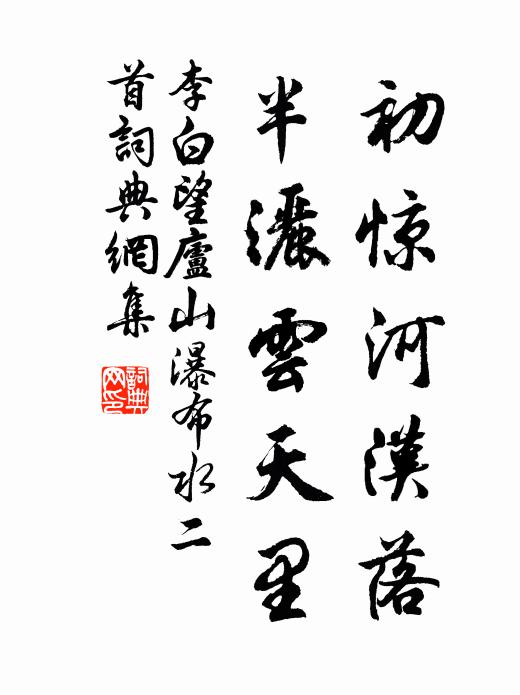 初惊河漢落
半灑雲天里
李白望廬山瀑布水二
首詞典網集
詞典
网印